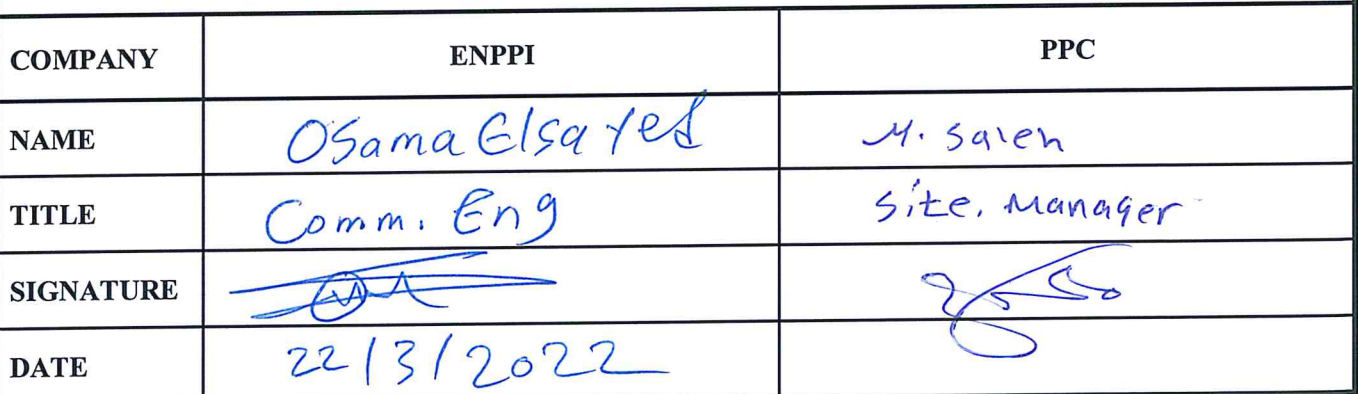 COMPANY ENPPI PPC
NAME Osama Elsayed M. Saleh
TITLE Comm. Eng Site. Manager
SIGNATURE
DATE 22/3/2022